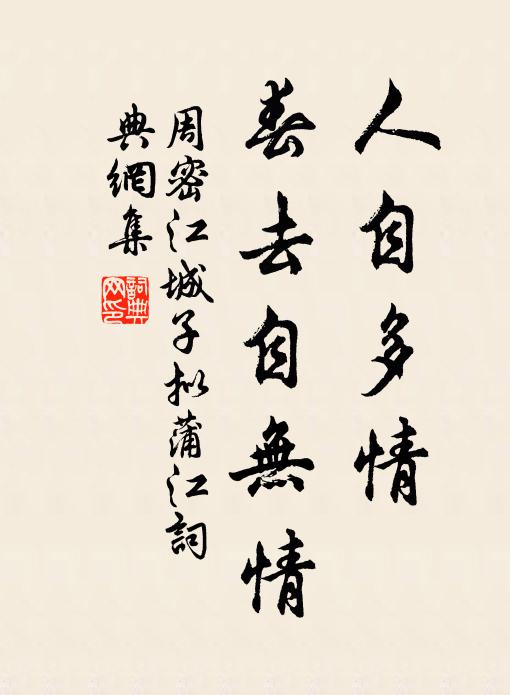 人自多情
春去自無情
周密江城子拟蒲江詞
典網集
詞典网印